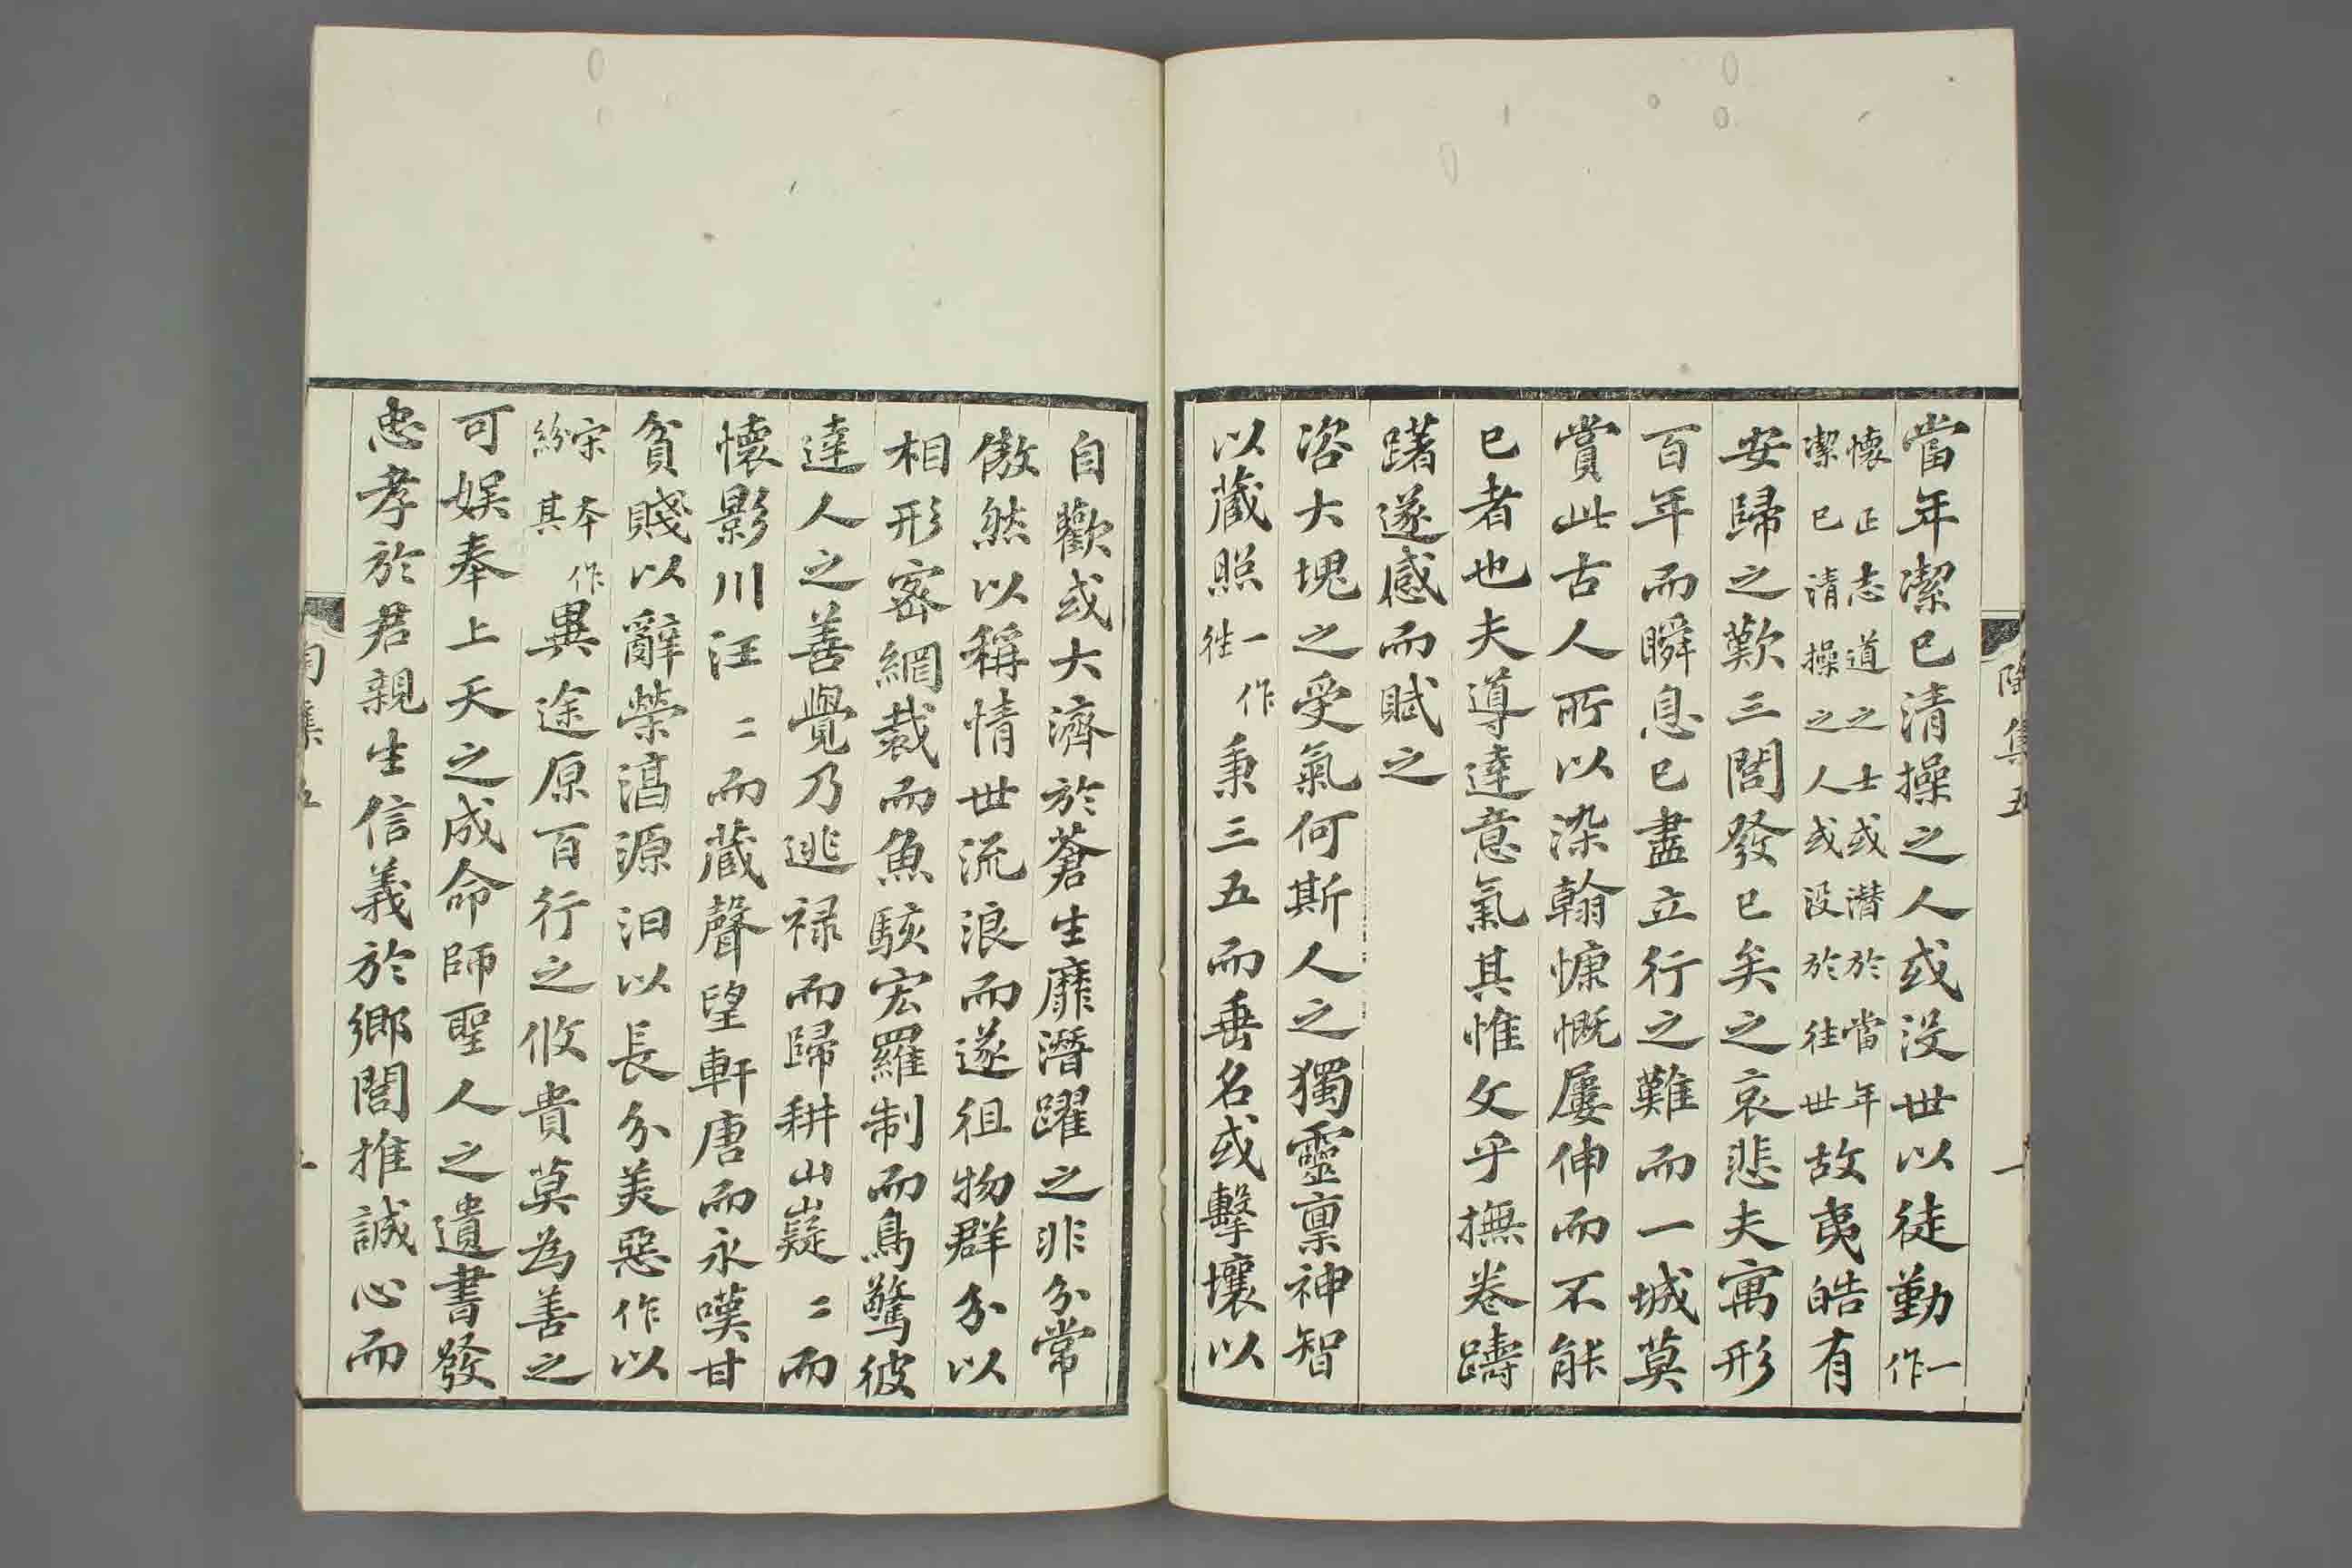 當年潔已清操之人或没世以徒勤一作
懷正志道之士或潜於當年潔已清操之人或没於往世故夷皓有
安歸之歎三閭發已矣之哀悲夫寓形
百年而瞬息已盡立行之難而一城莫
賞此古人所以染翰慷慨屢伸而不能
已者也夫導達意氣其惟文乎撫卷躊
躇遂感而賦之
咨大塊之受氣何斯人之獨靈禀神智
以藏照一作往秉三五而垂名或擊壤以
自歡或大濟於蒼生靡潛躍之非分常
傲然以稱情世流浪而遂徂物群分以
相形宻網裁而魚駭宏羅制而鳥驚彼
達人之善覺乃逃禄而歸耕山嶷二而
懷影川汪二而藏聲望軒唐而永嘆甘
貧賤以辭榮淯源汩以長分美惡作以
宋本作紛其異途原百行之攸貴莫為善之
可娱奉上天之成命師聖人之遺書發
忠孝於君親生信義於鄉閭推誠心而